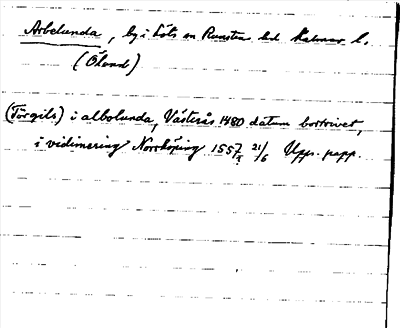 Arbelunda, by i Löts sn Runstens hd Kalmar l.
(Öland)
(Törgils) i albolunda, Västerås 1480 datum bortrivet,
i vidimering Norrköping 1557 21/6 Upps. papp.